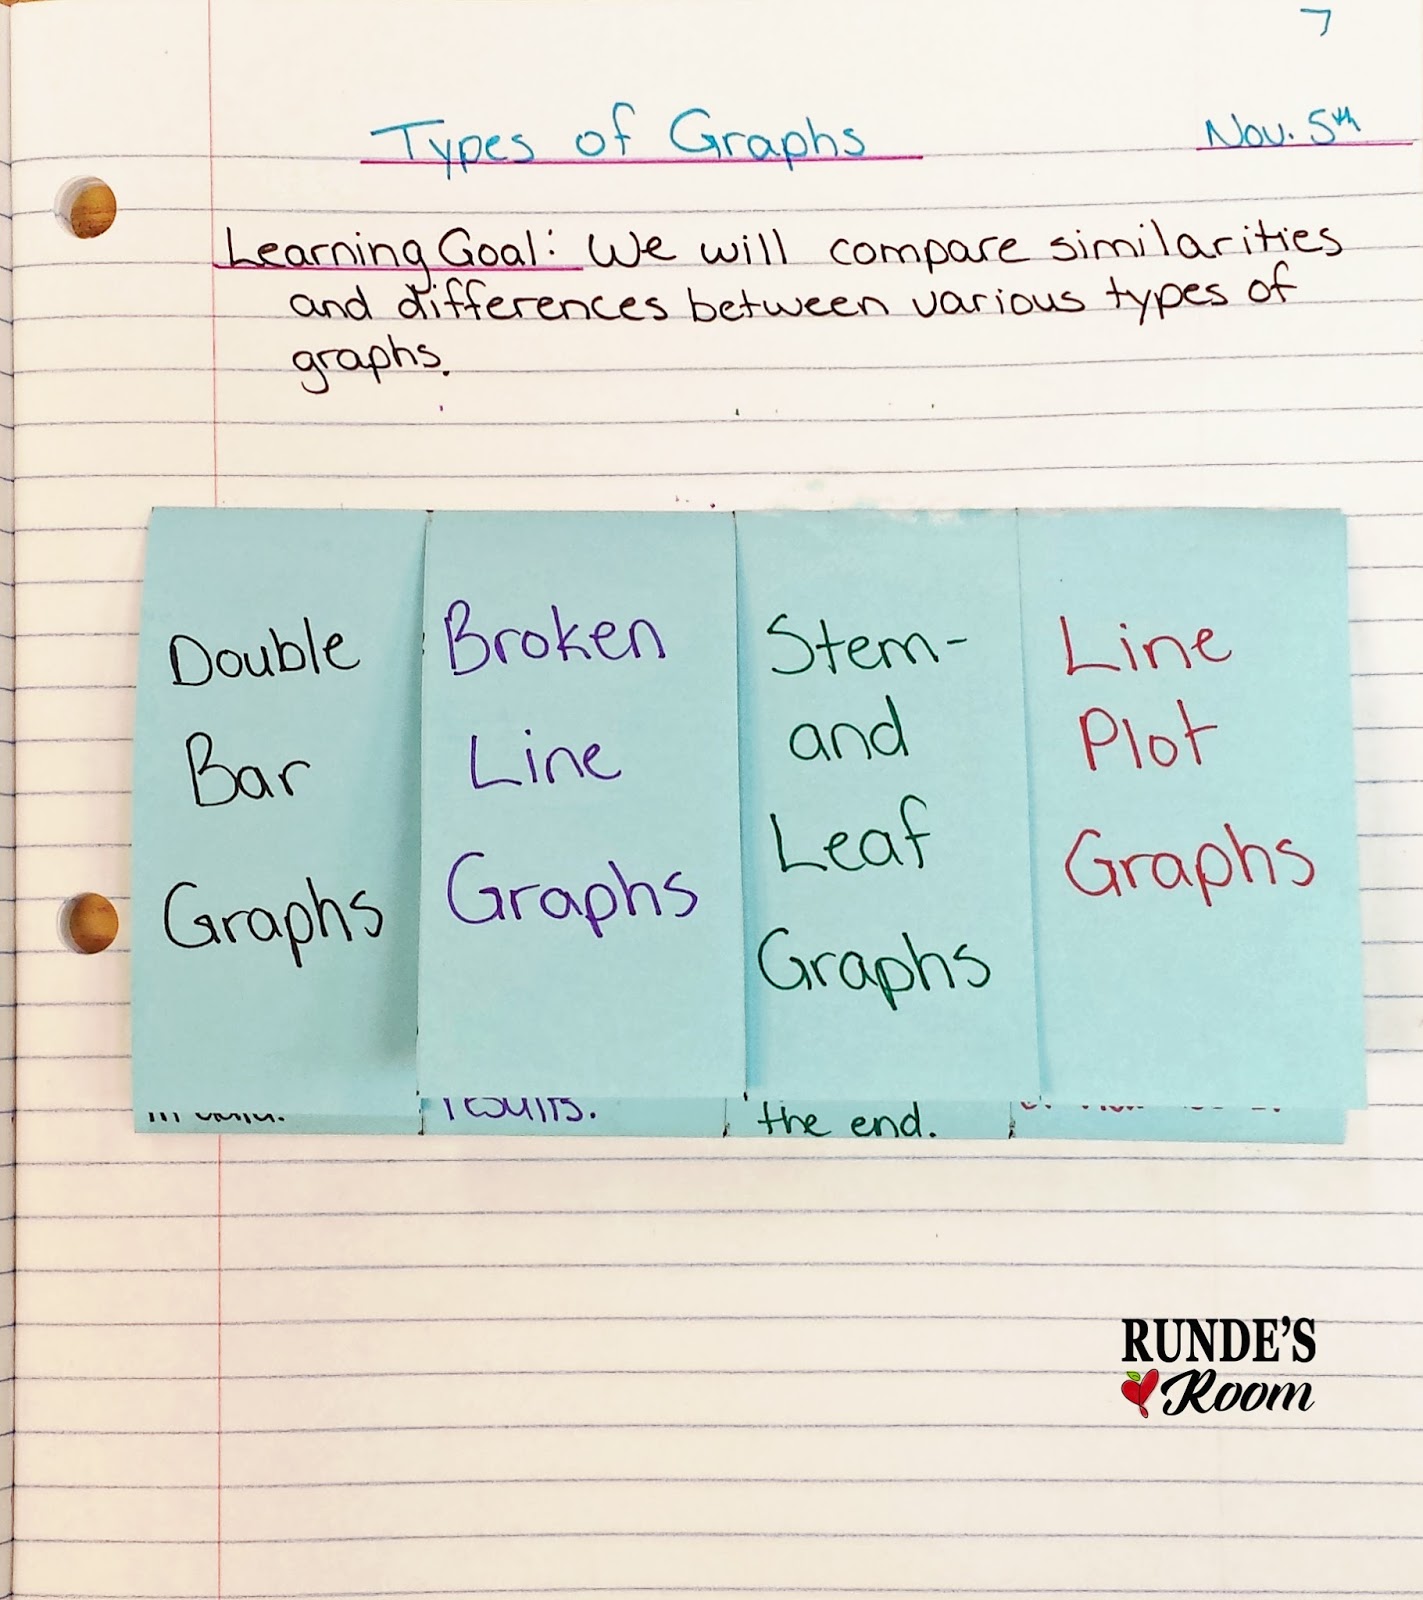 7
Types of Graphs
Nov. 5th
Learning Goal: We will compare similarities
and differences between various types of
graphs.
Double
Bar
Graphs
Broken
Line
Graphs
Stem-
and
Leaf
Graphs
Line
Plot
Graphs
results.
the end.
RUNDE'S
Room